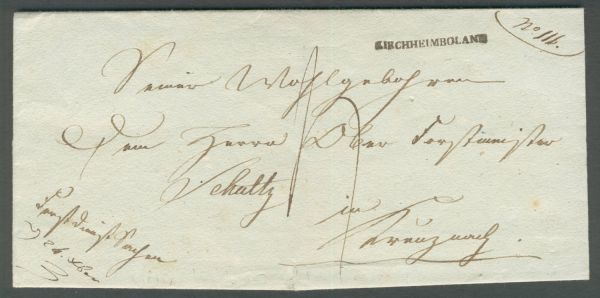 No 116.
KIRCHHEIMBOLAND
Seiner Wohlgebohren
Dem Herrn Ober Forstmeister
Schultz
in
Kreuznach.
Forstdienst Sachen